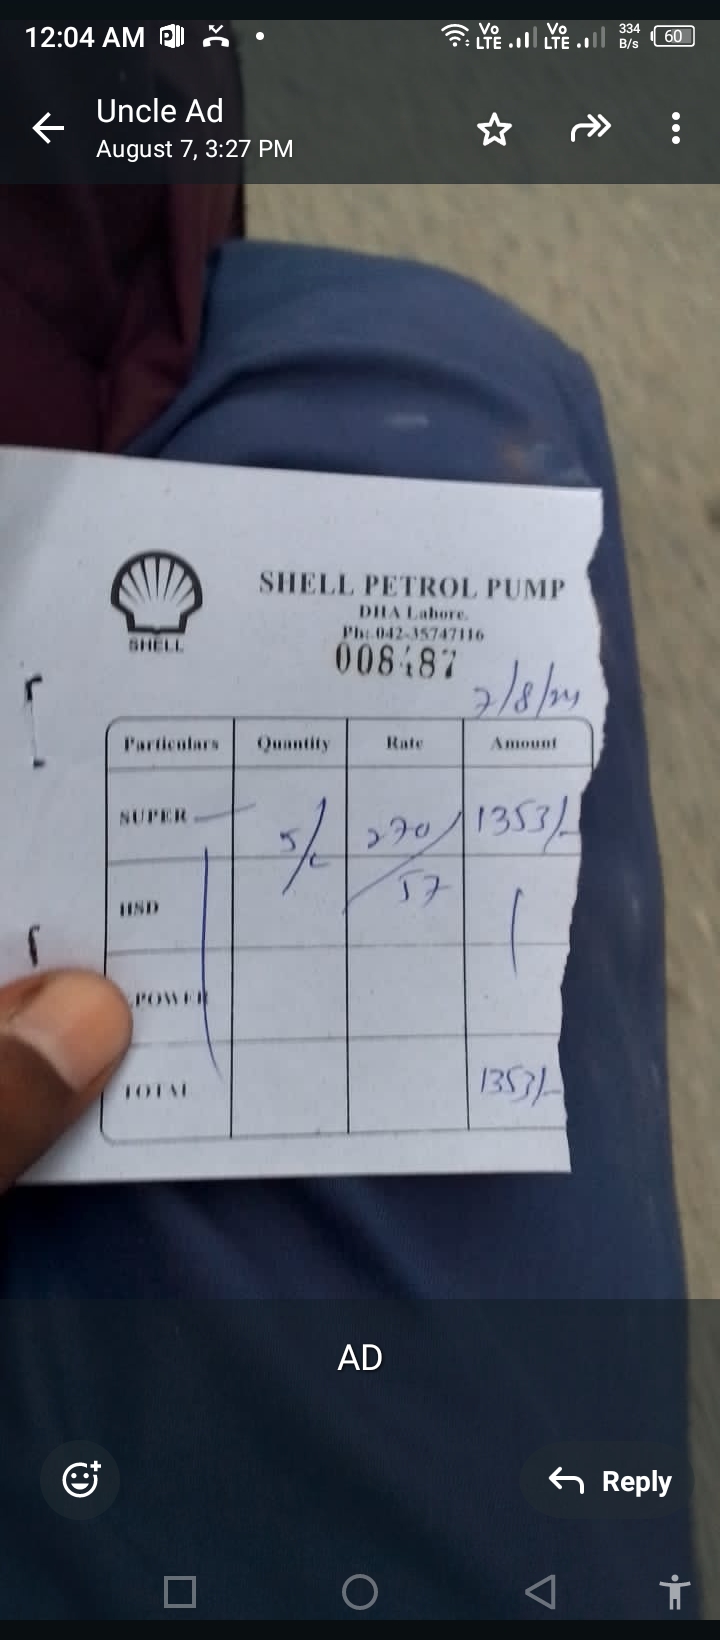 12:04 AM
Vo LTE Vo LTE 334 B/s 60
Uncle Ad
August 7, 3:27 PM
SHELL PETROL PUMP
DHA Lahore.
Ph:.042-35747116
SHELL
7/8/24
Particulars Quantity Rate Amount
SUPER 5/L 270/57 1353/-
HSD
POWER
TOTAL 1353/-
AD
Reply